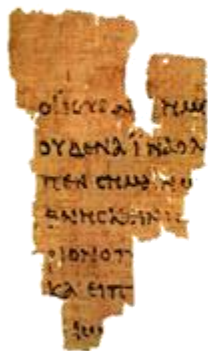 ΟΙ ΙΟΥΔΑΙ ΗΜΙ
ΟΥΔΕΝΑ ΙΝΑ Ο Λ
ΠΕΝ ϹΗΜΑΙΝΩ
ΘΝΗϹΚΕΙΝ
ΡΙΟΝ Ο Π
ΚΑΙ ΕΙΠ